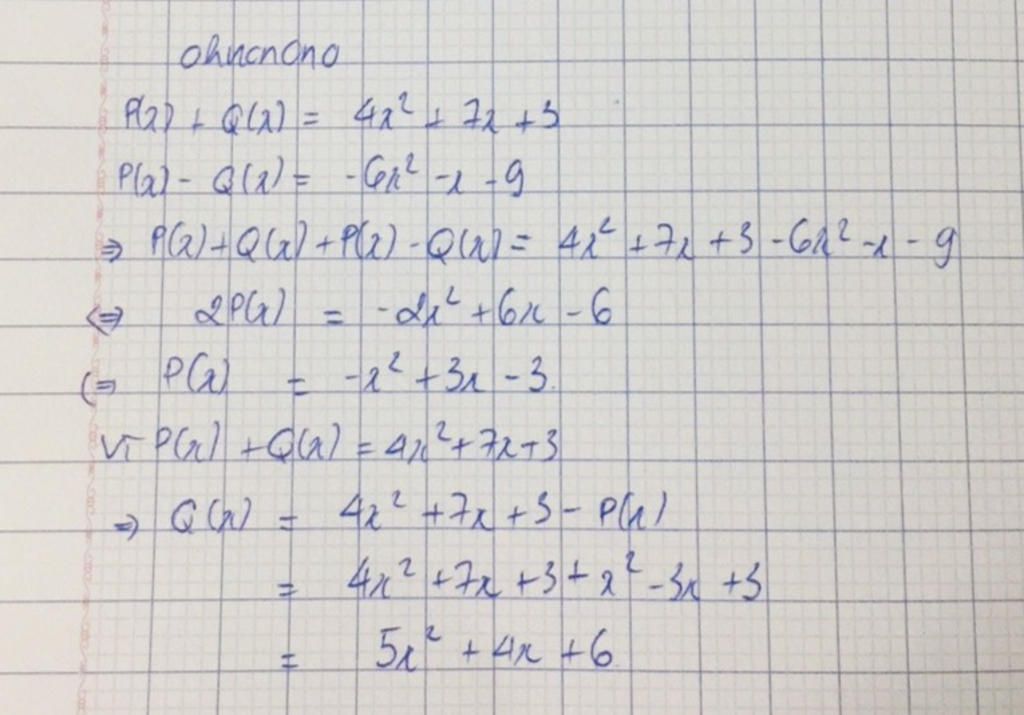 ohncn0no
P(x) + Q(x) = 4x² + 7x + 3
P(x) - Q(x) = -6x² - x - 9
⇒ P(x) + Q(x) + P(x) - Q(x) = 4x² + 7x + 3 - 6x² - x - 9
⇔ 2P(x) = -2x² + 6x - 6
⇔ P(x) = -x² + 3x - 3.
Vì P(x) + Q(x) = 4x² + 7x + 3
⇒ Q(x) = 4x² + 7x + 3 - P(x)
= 4x² + 7x + 3 + x² - 3x + 3
= 5x² + 4x + 6